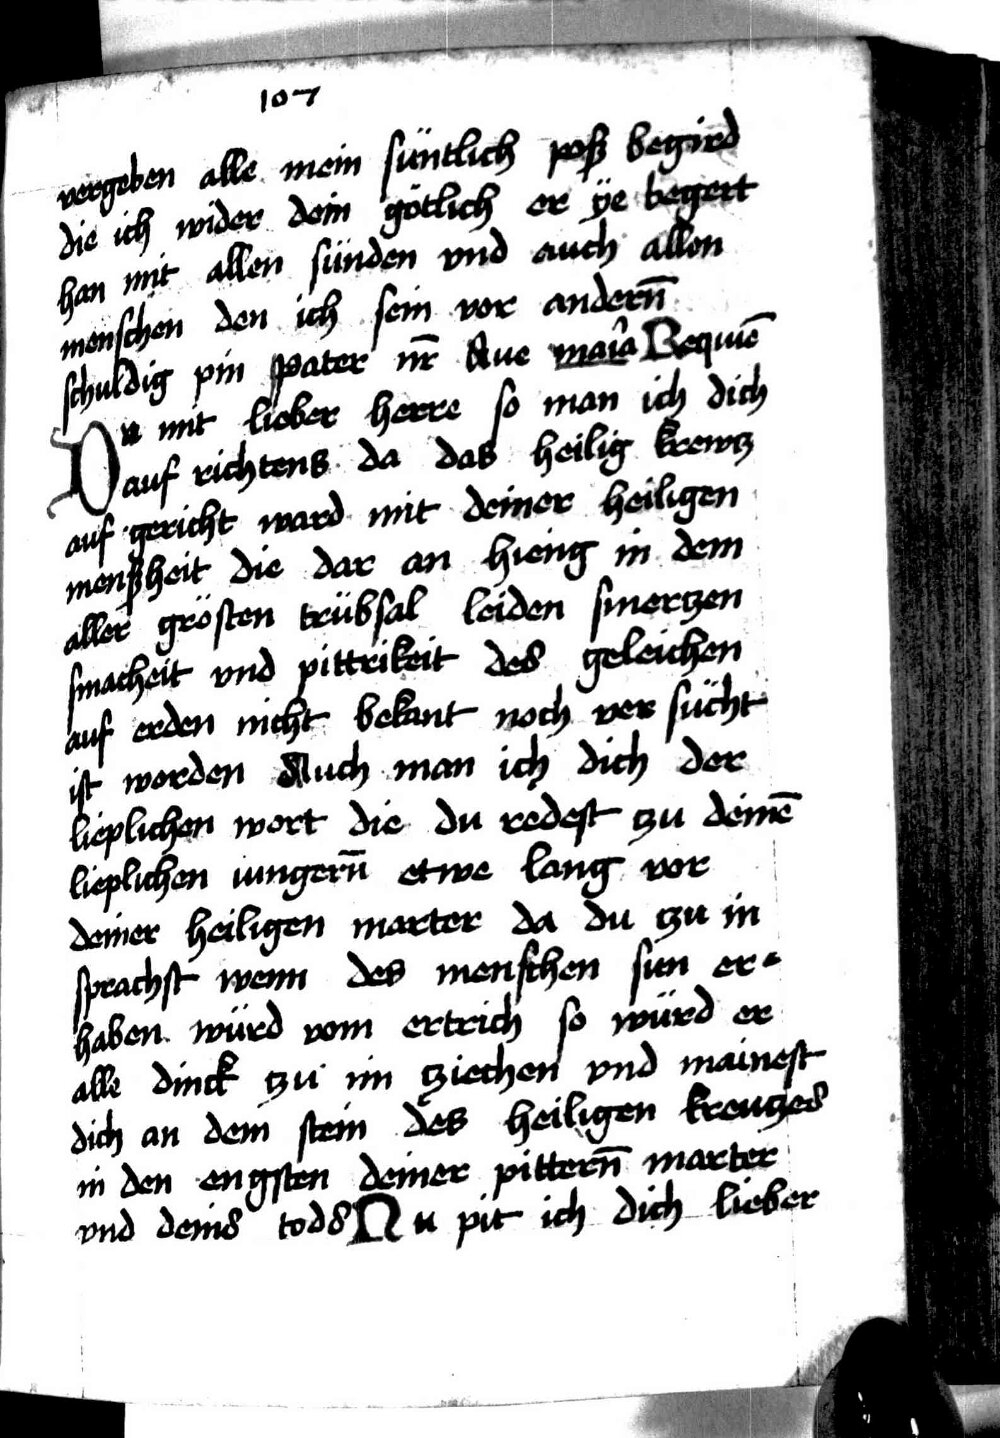 107
vergeben alle mein süntlich poß begird
die ich wider dein götlich er ÿe begert
han mit allen sünden vnd auch allen
menschen den ich sein vor andern̄
schuldig pin Pater nr̄ Aue maria Requiē
Nu mit lieber herre so man ich dich
auf richtens da das heilig krewtz
auf gericht ward mit deiner heiligen
menßheit die dar an hieng in dem
aller grösten trübsal leiden smertzen
smacheit vnd pittrikeit des geleichen
auf erden nicht bekant noch ver sücht
ist worden Auch man ich dich der
lieplichen wort die du redest tzu deinē
lieplichen iungern̄ etwe lang vor
deiner heiligen marter da du tzu in
sprachst wenn des menschen sun er-
haben würd vom ertrich so würd er
alle dinck tzu im tziechen vnd mainest
dich an dem stein des heiligen kreutzes
in den engsten deiner pittern̄ marter
vnd deins tods Nu pit ich dich lieber